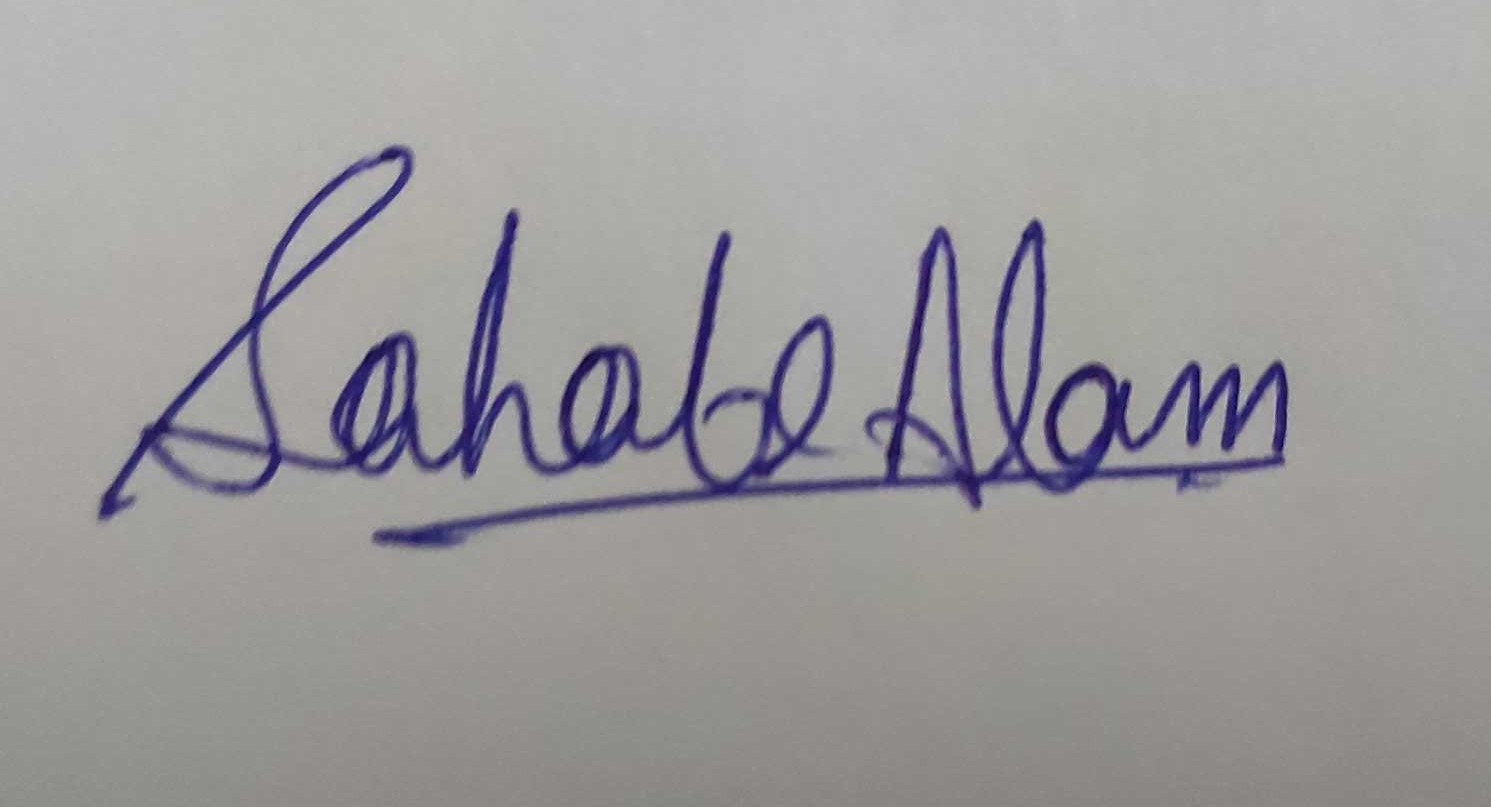 Sahabe Alam